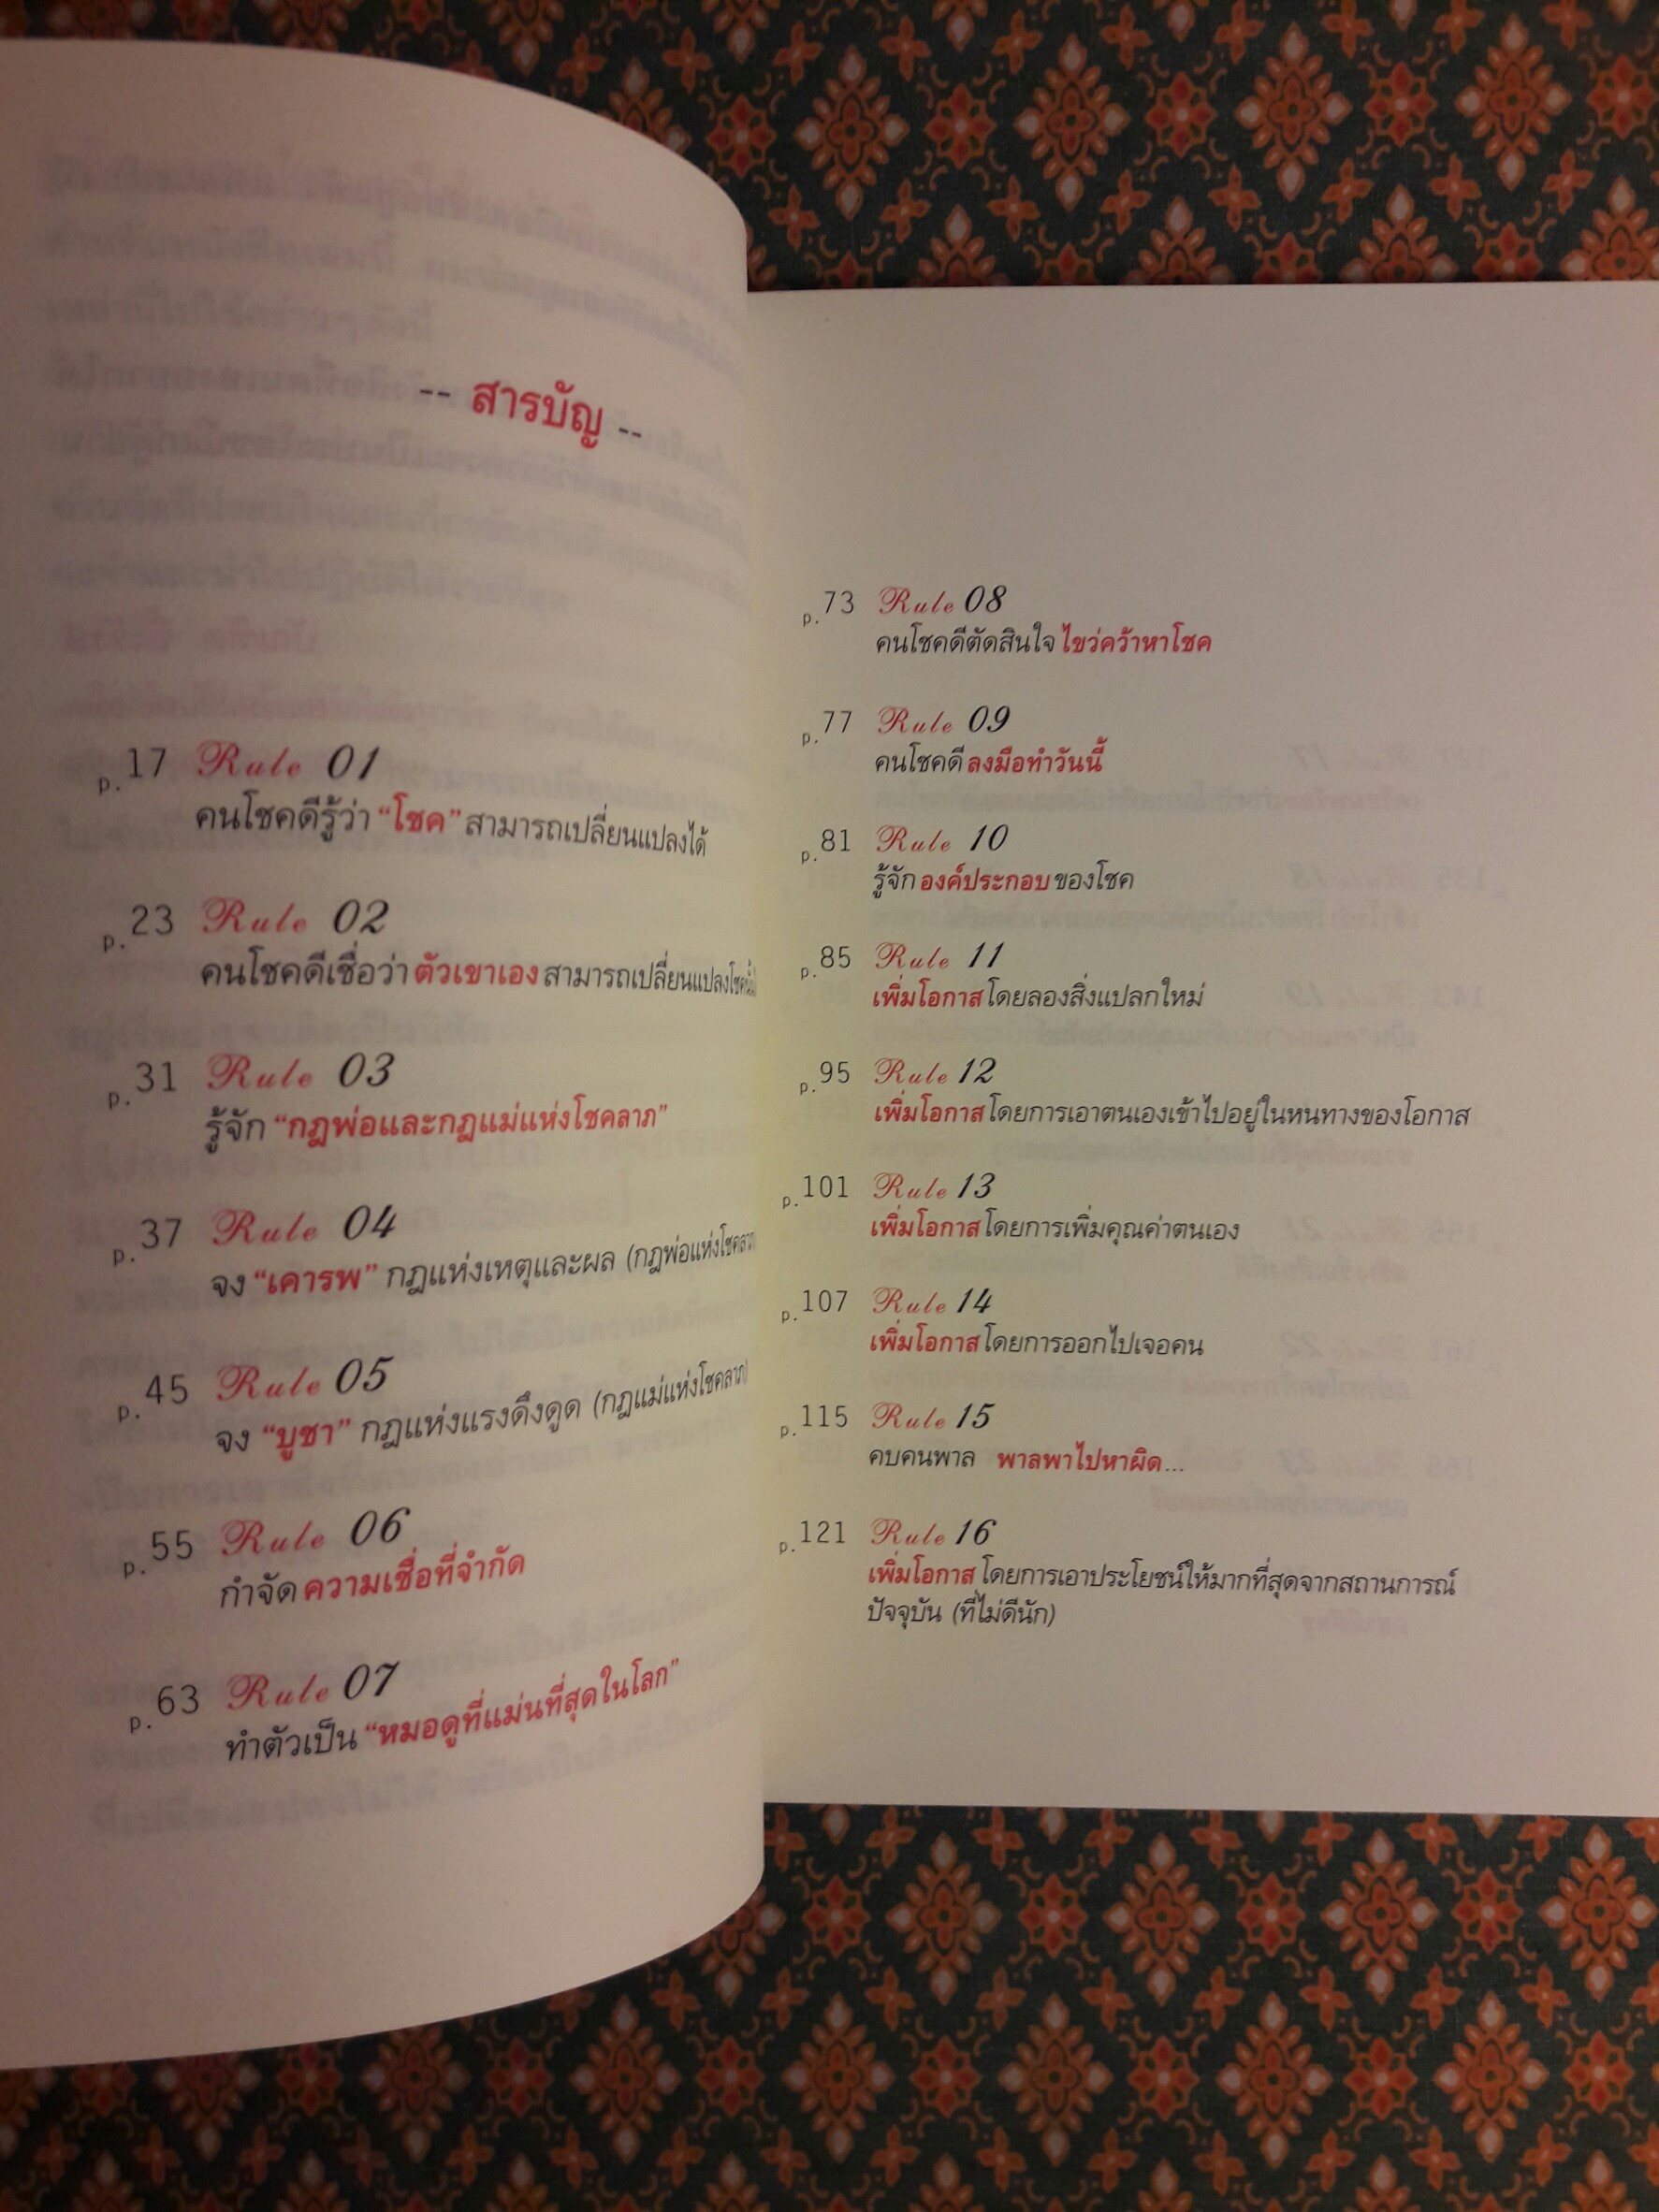 -- สารบัญ --
p.17 Rule 01
คนโชคดีรู้ว่า “โชค” สามารถเปลี่ยนแปลงได้
p.23 Rule 02
คนโชคดีเชื่อว่า ตัวเขาเอง สามารถเปลี่ยนแปลงโชคนั้น
p.31 Rule 03
รู้จัก “กฎพ่อและกฎแม่แห่งโชคลาภ”
p.37 Rule 04
จง “เคารพ” กฎแห่งเหตุและผล (กฎพ่อแห่งโชคลาภ
p.45 Rule 05
จง “บูชา” กฎแห่งแรงดึงดูด (กฎแม่แห่งโชคลาภ)
p.55 Rule 06
กำจัด ความเชื่อที่จำกัด
p.63 Rule 07
ทำตัวเป็น “หมอดูที่แม่นที่สุดในโลก”
p.73 Rule 08
คนโชคดีตัดสินใจ ไขว่คว้าหาโชค
p.77 Rule 09
คนโชคดี ลงมือทำวันนี้
p.81 Rule 10
รู้จัก องค์ประกอบ ของโชค
p.85 Rule 11
เพิ่มโอกาส โดยลองสิ่งแปลกใหม่
p.95 Rule 12
เพิ่มโอกาส โดยการเอาตนเองเข้าไปอยู่ในหนทางของโอกาส
p.101 Rule 13
เพิ่มโอกาส โดยการเพิ่มคุณค่าตนเอง
p.107 Rule 14
เพิ่มโอกาส โดยการออกไปเจอคน
p.115 Rule 15
คบคนพาล พาลพาไปหาผิด...
p.121 Rule 16
เพิ่มโอกาส โดยการเอาประโยชน์ให้มากที่สุดจากสถานการณ์
ปัจจุบัน (ที่ไม่ดีนัก)